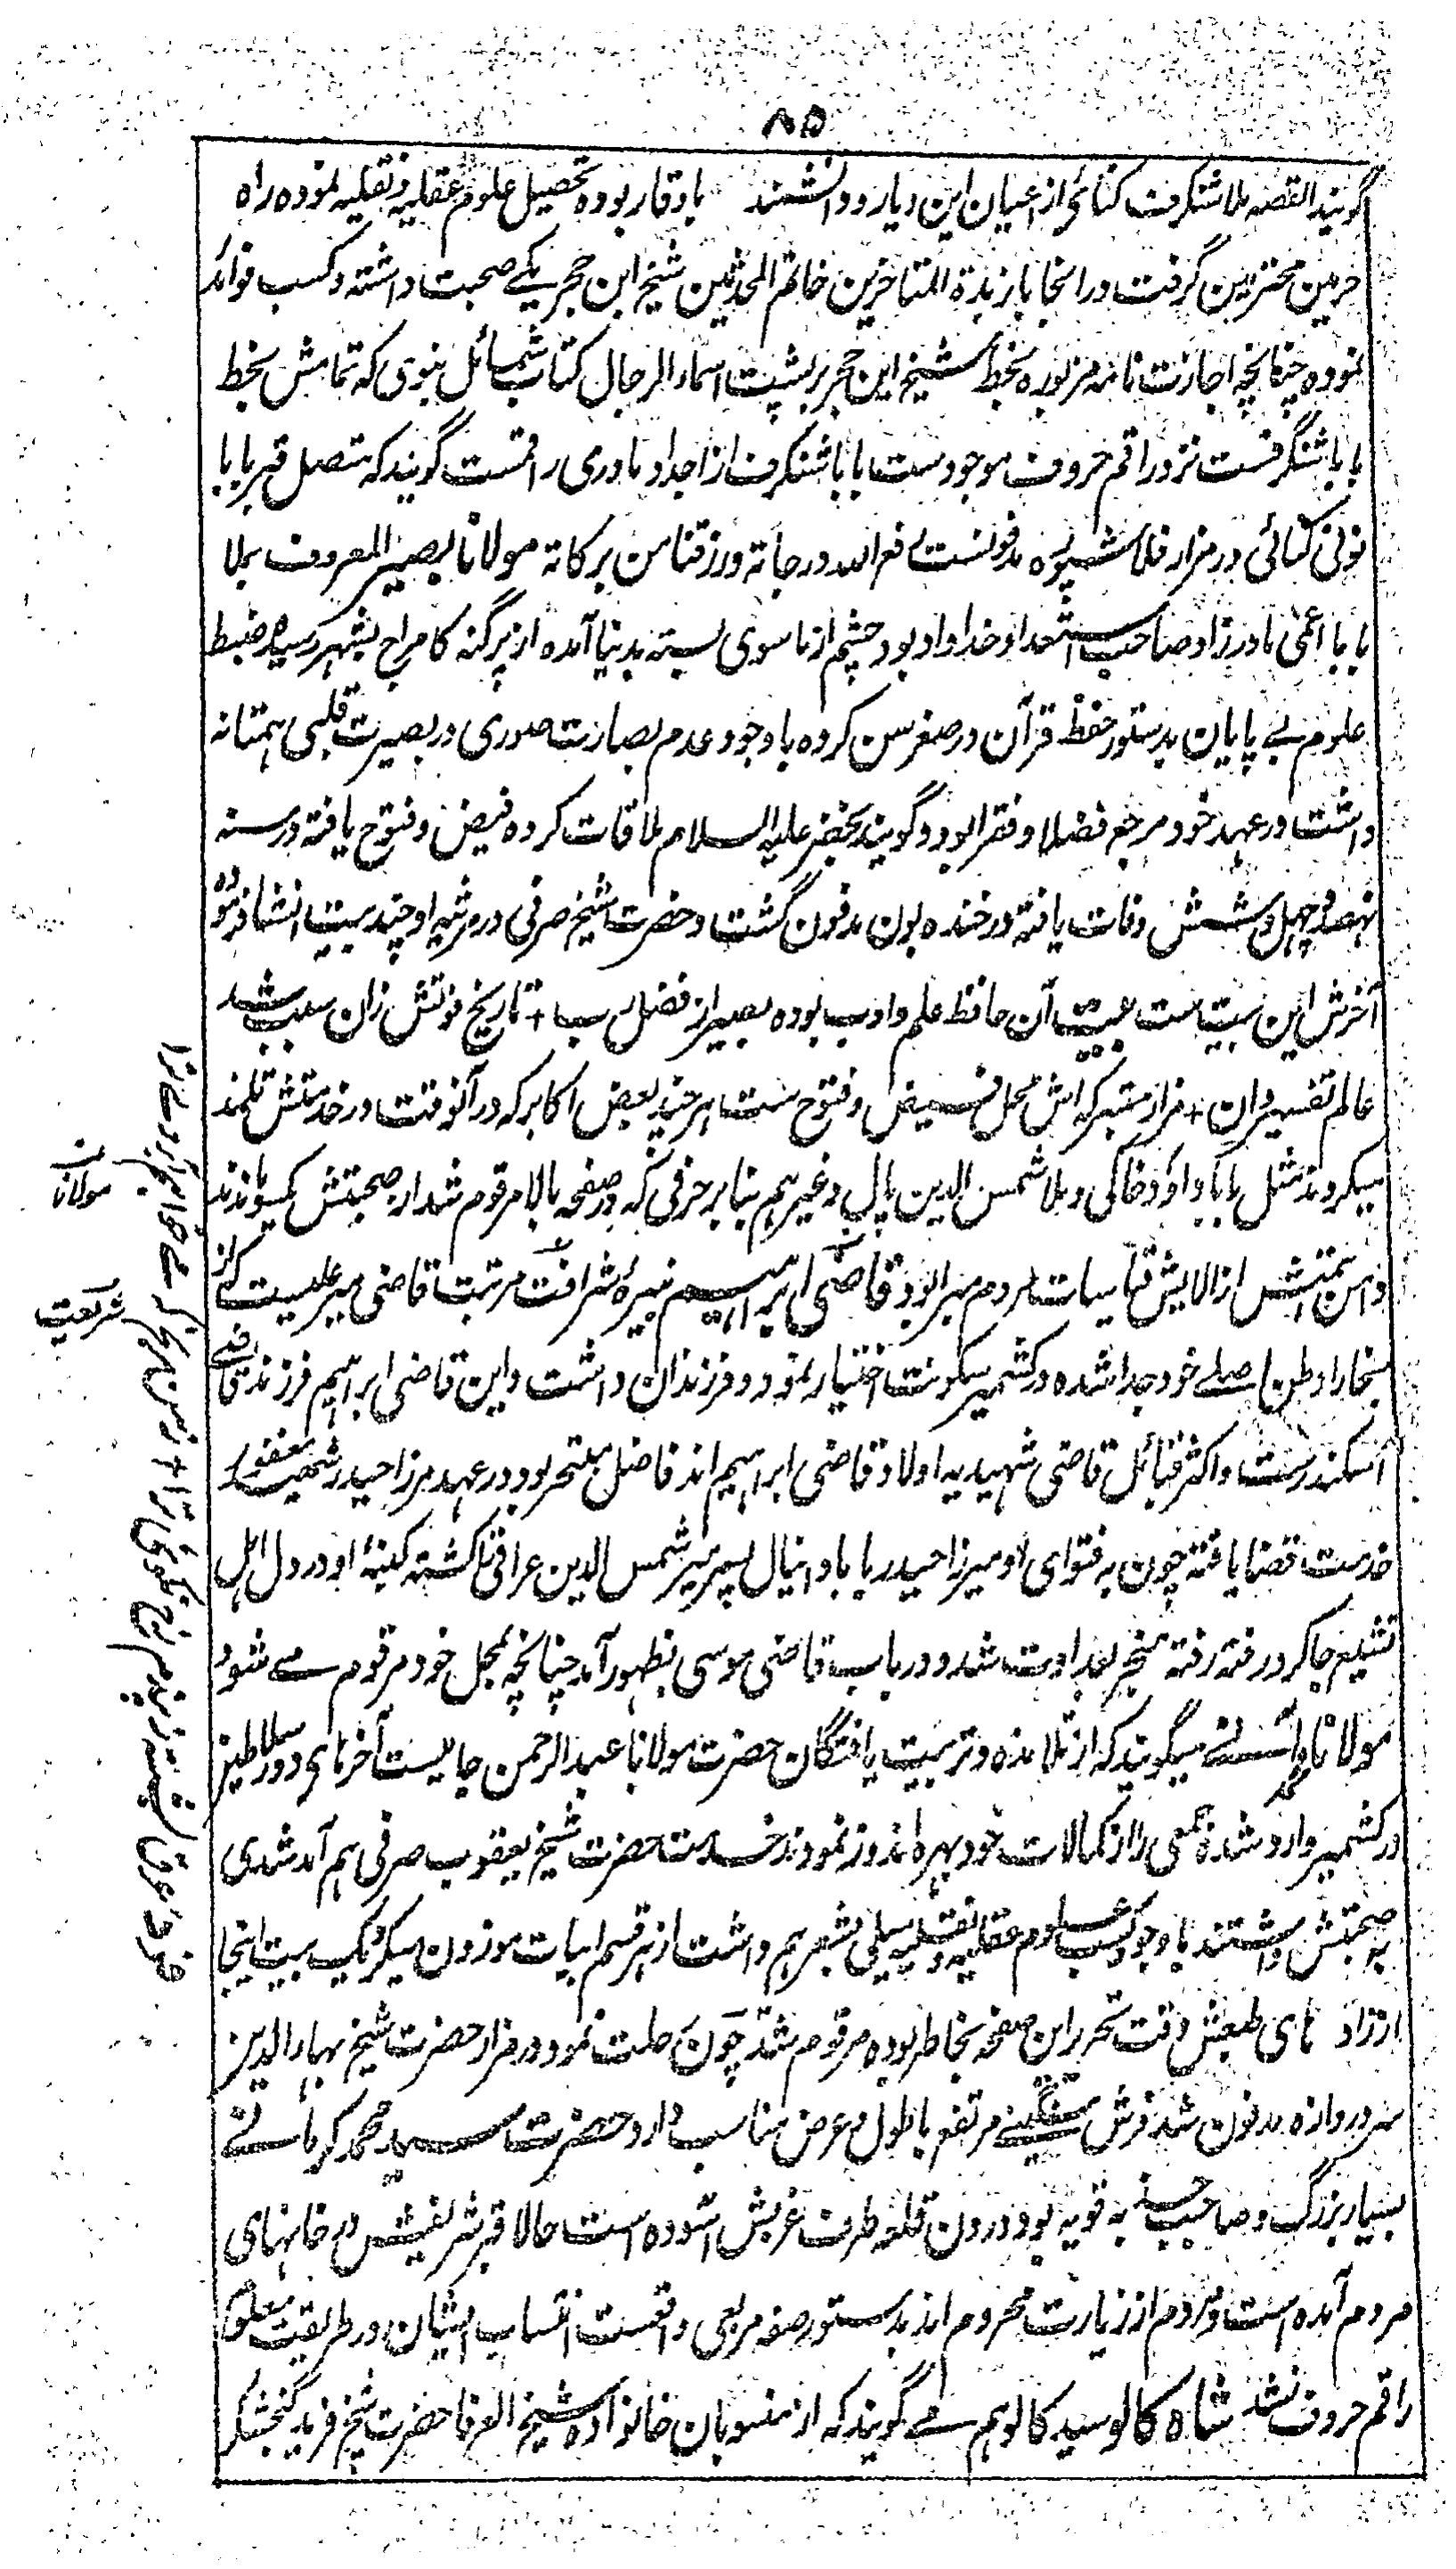 ۸۵
گویند القصه ملا شنگرف کنائی از اعیان این دیار و دانشمند باوقار بوده تحصیل علوم عقلیه و نقلیه نموده راه
حرمین محترمین گرفت و در انجا با زبدة المتاخرین خاتم المحدثین شیخ ابن حجر مکی صحبت داشته و کسب فوائد
نموده چنانچه اجازت نامه مزبوره بخط شیخ ابن حجر بر پشت اسماء الرجال کتاب شمائل نبوی که تمامش بخط
بابا شنگرفست نزد راقم حروف موجودست بابا شنگرف از اجداد مادری راقمست گویند که متصل قبر بابا
نونی کنائی در مزار فلاشپوره مدفونست رفع الله درجاته ورزقنا من برکاته مولانا بصیر المعروف بملا
بابا اعمی مادرزاد صاحب استعداد خداداد بود چشم از ماسوی بسته بدنیا آمده از پرگنه کامراج بشهر رسیده ضبط
علوم بے پایان بدستور حفظ قرآن در صغر سن کرده باوجود عدم بصارت صوری در بصیرت قلبی همتا نه
داشت در عهد خود مرجع فضلا و فقرا بود و گویند بخضر علیه السلام ملاقات کرده فیض و فتوح یافته در سنه
نهصد و چهل و شش وفات یافته در خنده بون مدفون گشت و حضرت شیخ صرفی در مرثیه او چند بیت انشا فرموده
آخرش این بیت ست بیت آن حافظ علم و ادب بوده بصیر از فضل رب + تاریخ فوتش زان سبب شد
عالم تفسیر دان + مزار متبرکه اش محل فیض و فتوح ست هر چند بعض اکابر که در آنوقت در خدمتش تلمذ
میکردند مثل بابا داود خاکی و ملا شمس الدین پال و غیرهم بنابر حرفی که در صفحه بالا مرقوم شد از صحبتش یکسو ماندند
دامن همتش از الایش قیاسات مردم مبرا بود قاضی ابراهیم نبیره شرافت مرتبت قاضی میر علیست که از
بخارا وطن اصلے خود جدا شده در کشمیر سکونت اختیار نمود و فرزندان داشت و این قاضی ابراهیم فرزند قاضے
اسکندرست و اکثر قبائل قاضی شهیدیه اولاد قاضی ابراهیم اند فاضل متبحر بود در عهد مرزا حیدر مغفور
خدمت قضا یافته چون به فتوای او میرزا حیدر بابا دانیال پسر میر شمس الدین عراقی را کشته کینهٔ او در دل اهل
تشیع جا کرد رفته رفته منجر بعداوت شد و در باب قاضی موسی بظهور آمد چنانچه بمحل خود مرقوم مے شود
مولانا میگویند که از تلامذه و تربیت یافتگان حضرت مولانا عبد الرحمن جامیست آخرهای دور سلاطین
در کشمیر وارد شده جمعی را از کمالات خود بهره اندوز نمودند خدمت حضرت شیخ یعقوب صرفی هم آمدشدی
به صحبتش داشتند باوجود کسب علوم عقلیه و نقلیه میلی بشعر هم داشت از هر قسم ابیات موزون میکرد یک بیت اینجا
از زاد های طبعش وقت تحریر این صفحه بخاطر بوده مرقوم شد چون رحلت نمود در مزار حضرت شیخ بهاء الدین
سر دروازه مدفون شد فرش سنگینے مرتفع با طول و عرض مناسب دارد حضرت سید محمد کرمانے
بسیار بزرگ و صاحب جذبه قویه بود درون قلعه طرف غربش آسوده است حالا قبر شریفش در خانهای
مردم آمده است و مردم از زیارت محروم اند بدستور صفه مربعی واقعست انتساب ایشان در طریقت معلوم
راقم حروف نشد شاه کالو سید کالو هم مے گویند که از منسوبان خانواده شیخ العرفا حضرت شیخ فرید گنجشکر
مولانا
شریعت